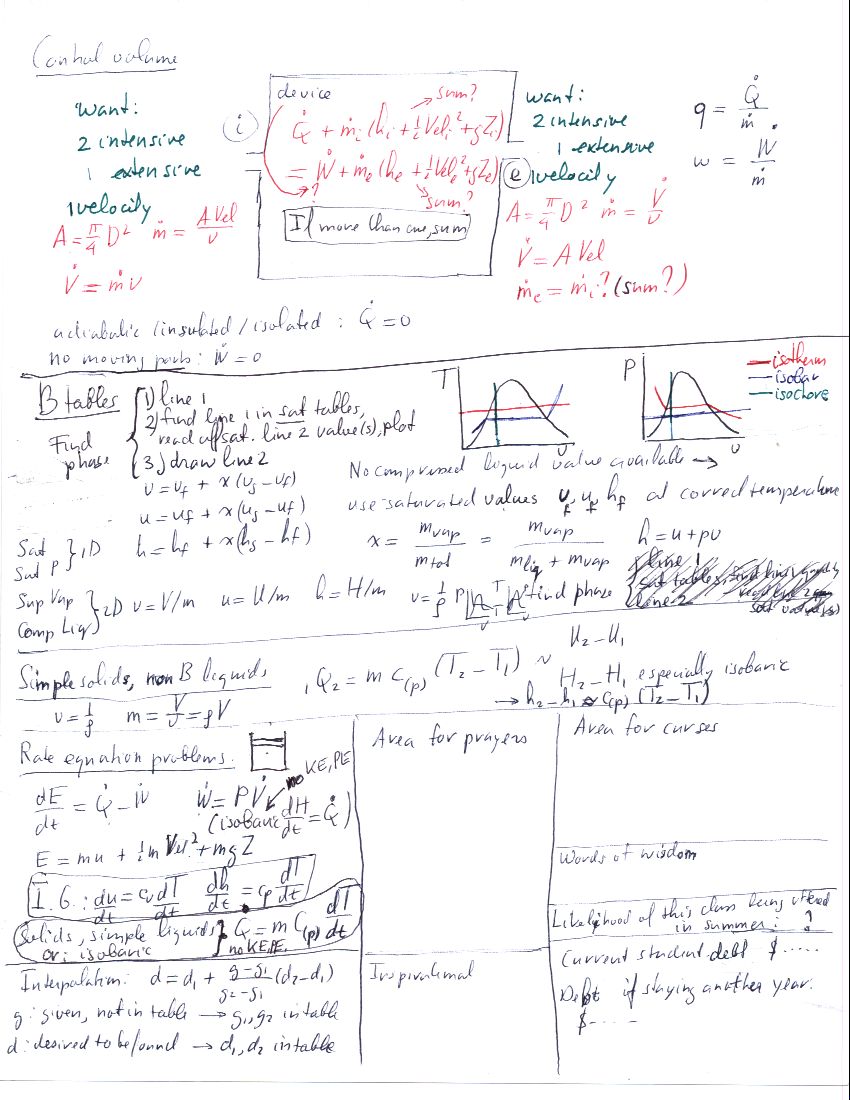 Control volume
want:
2 intensive
1 extensive
1 velocity
A = π/4 D² ṁ = A Vel / v
V̇ = ṁ v
i
device
sum?
Q̇ + ṁᵢ (hᵢ + ½ Velᵢ² + gZᵢ)
= Ẇ + ṁₑ (hₑ + ½ Velₑ² + gZₑ)
?
sum?
If more than one, sum
want:
2 intensive
1 extensive
e
1 velocity
A = π/4 D² ṁ = V̇/v
V̇ = A Vel
ṁₑ = ṁᵢ? (sum?)
q = Q̇/ṁ
w = Ẇ/ṁ
adiabatic / insulated / isolated : Q̇ = 0
no moving parts: Ẇ = 0
B tables
Find phase
1) line 1
2) find line 1 in sat tables,
read off sat. line 2 value(s), plot
3) draw line 2
T
v
P
v
isotherm
isobar
isochore
v = vf + x(vg - vf)
u = uf + x(ug - uf)
h = hf + x(hg - hf)
No compressed liquid value available →
use saturated values vf, uf, hf at correct temperature
Sat T
Sat P } 1D
x = mvap/mtot = mvap/(mliq + mvap)
h = u + pv
Sup Vap
Comp Liq } 2D
v = V/m u = U/m h = H/m v = 1/ρ
P
v
T
v
find phase
line 1
line 2
Simple solids, non B liquids
₁Q₂ = m C(p) (T₂ - T₁) ~
U₂ - U₁
H₂ - H₁ especially isobaric
→ h₂ - h₁ ≈ C(p) (T₂ - T₁)
v = 1/ρ m = V/v = ρV
Rate equation problems.
no KE, PE
dE/dt = Q̇ - Ẇ Ẇ = P V̇
(isobaric dH/dt = Q̇)
E = mu + ½ m Vel² + mgZ
I.G.: du/dt = cv dT/dt dh/dt = cp dT/dt
Solids, simple liquids } Q̇ = m C(p) dT/dt
or: isobaric no KE, PE.
Interpolation: d = d₁ + (g - g₁)/(g₂ - g₁) (d₂ - d₁)
g: given, not in table → g₁, g₂ in table
d: desired to be found → d₁, d₂ in table
Area for prayers
Inspirational
Area for curses
Words of wisdom
Likelihood of this class being offered
in summer: ?
Current student debt $.....
Debt if staying another year.
$.....